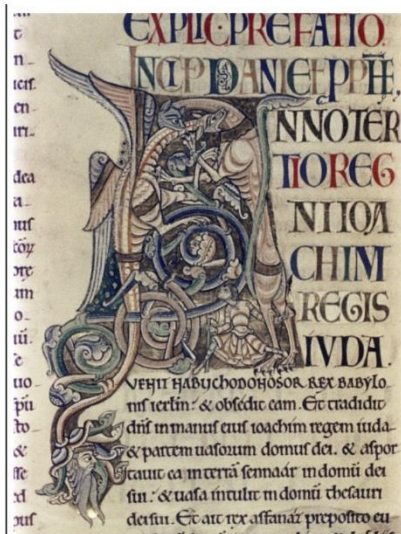 EXPLIC·PREFATIO.
INCIP DANIEL PPHE,
ANNO TER
TIO REG
NI IOA
CHIM
REGIS
IUDA.
VENIT NABUCHODONOSOR REX BABYLO
nis ierlm: & obsedit eam. Et tradidit
dns in manus eius ioachim regem iuda
& partem uasorum domus dei. & aspor
tauit ea in terra sennaar in domu dei
sui: & uasa intulit in domu thesauri
dei sui. Et ait rex asfanaz preposito eu